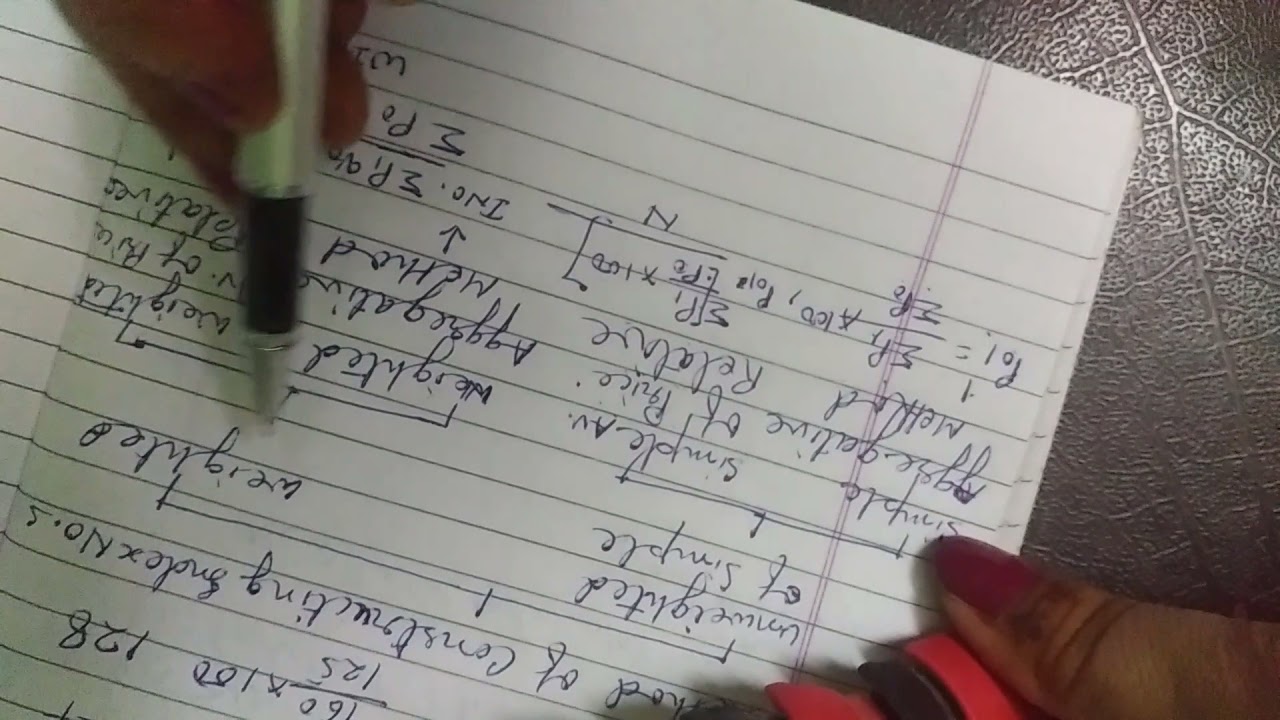 160/125 × 100 128
thod of Constructing Index No.s
Unweighted of Simple
weighted
Simple Aggregative Method
Simple Av. of Price Relative
Weighted Aggregative Method
Weighted Av. of Price Relatives
P01 = ΣP1/ΣP0 × 100, P01 =
N
I No. ΣP1q0
ΣP0